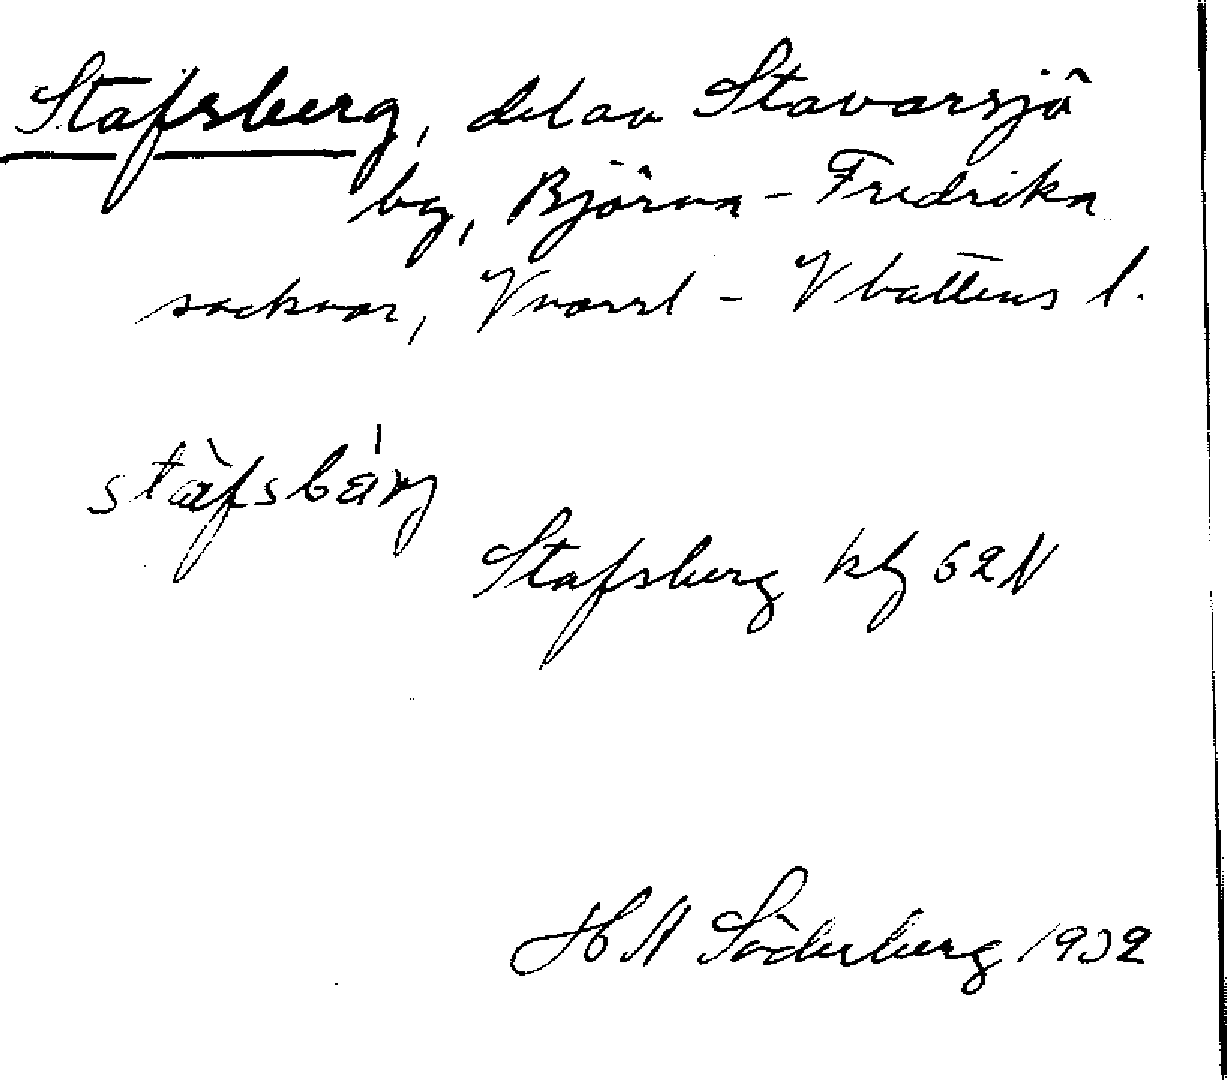 Stafsberg, del av Stavarsjö
by, Björna - Fredrika
socknar, Vnorrl - Vbottens l.
stàfsbárj
Stafsberg kbl 62 N
H N Söderberg 1932